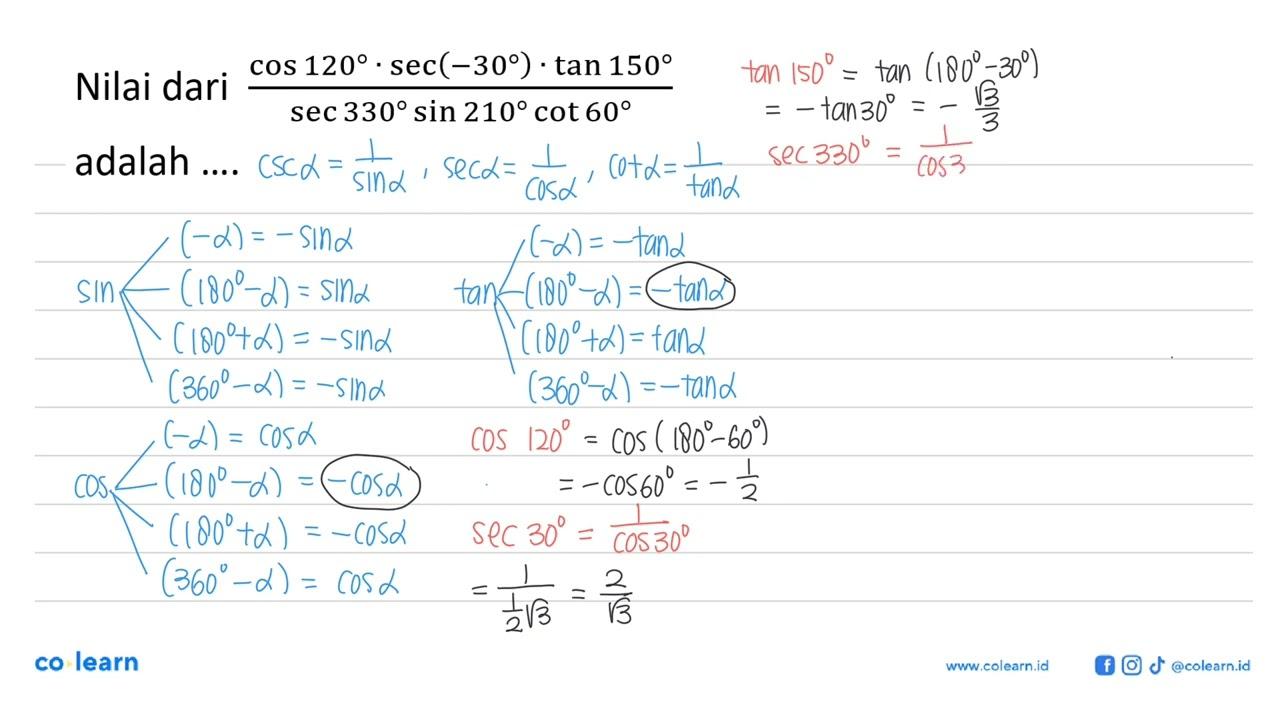 Nilai dari cos 120° · sec(−30°) · tan 150° / sec 330° sin 210° cot 60°
adalah ....
cscα = 1/sinα , secα = 1/cosα , cotα = 1/tanα
tan 150° = tan (180° − 30°)
= − tan 30° = − √3/3
sec 330° = 1/cos 3
sin
(−α) = − sinα
(180° − α) = sinα
(180° + α) = − sinα
(360° − α) = − sinα
tan
(−α) = − tanα
(180° − α) = − tanα
(180° + α) = tanα
(360° − α) = − tanα
cos
(−α) = cosα
(180° − α) = − cosα
(180° + α) = − cosα
(360° − α) = cosα
cos 120° = cos (180° − 60°)
= − cos 60° = − 1/2
sec 30° = 1/cos 30°
= 1/(1/2 √3) = 2/√3
co learn
www.colearn.id
@colearn.id